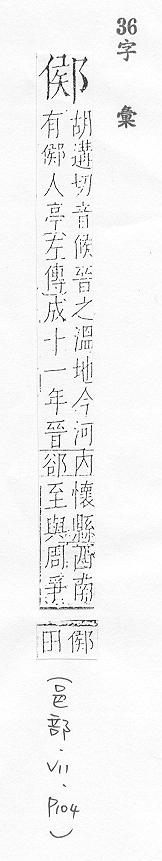 36 字彙
鄇
胡遘切音候晉之溫地今河內懷縣西南
有鄇人亭左傳成十一年晉郤至與周爭
鄇
田
(邑部.VII.P104)